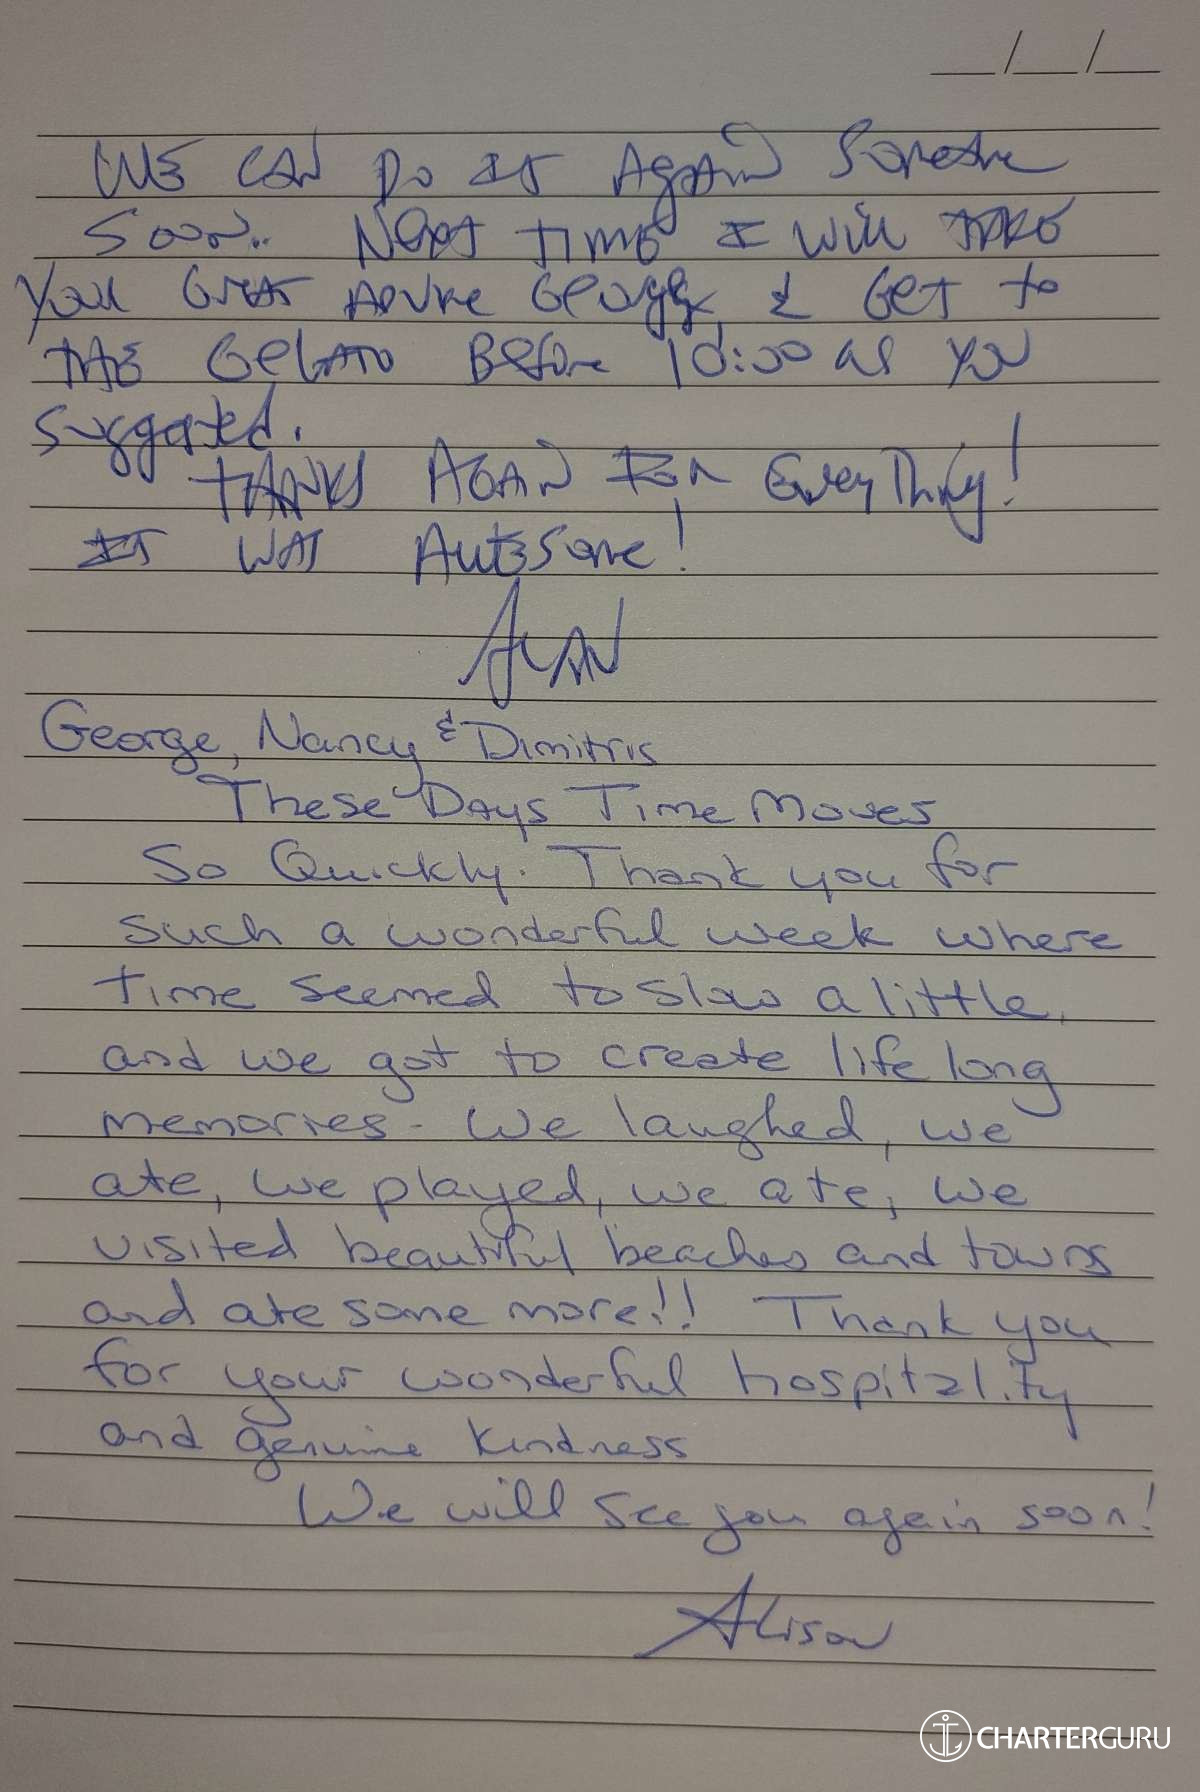 __/__/__
WE CAN DO IT AGAIN Sometime
Soon.. Next TIME I Will TAKE
Your Great Advice George & Get to
THE Gelato Before 10:00 as you
suggested.
THANKS AGAIN FOR EveryThing!
IT WAS AWESome!
ALAN
George, Nancy & Dimitris
These Days Time Moves
So Quickly. Thank you for
such a wonderful week where
time seemed to slow a little,
and we got to create life long
memories. We laughed, we
ate, we played, we ate, we
visited beautiful beaches and towns
and ate some more!! Thank you
for your wonderful hospitality
and genuine kindness
We will see you again soon!
Alison
CHARTERGURU